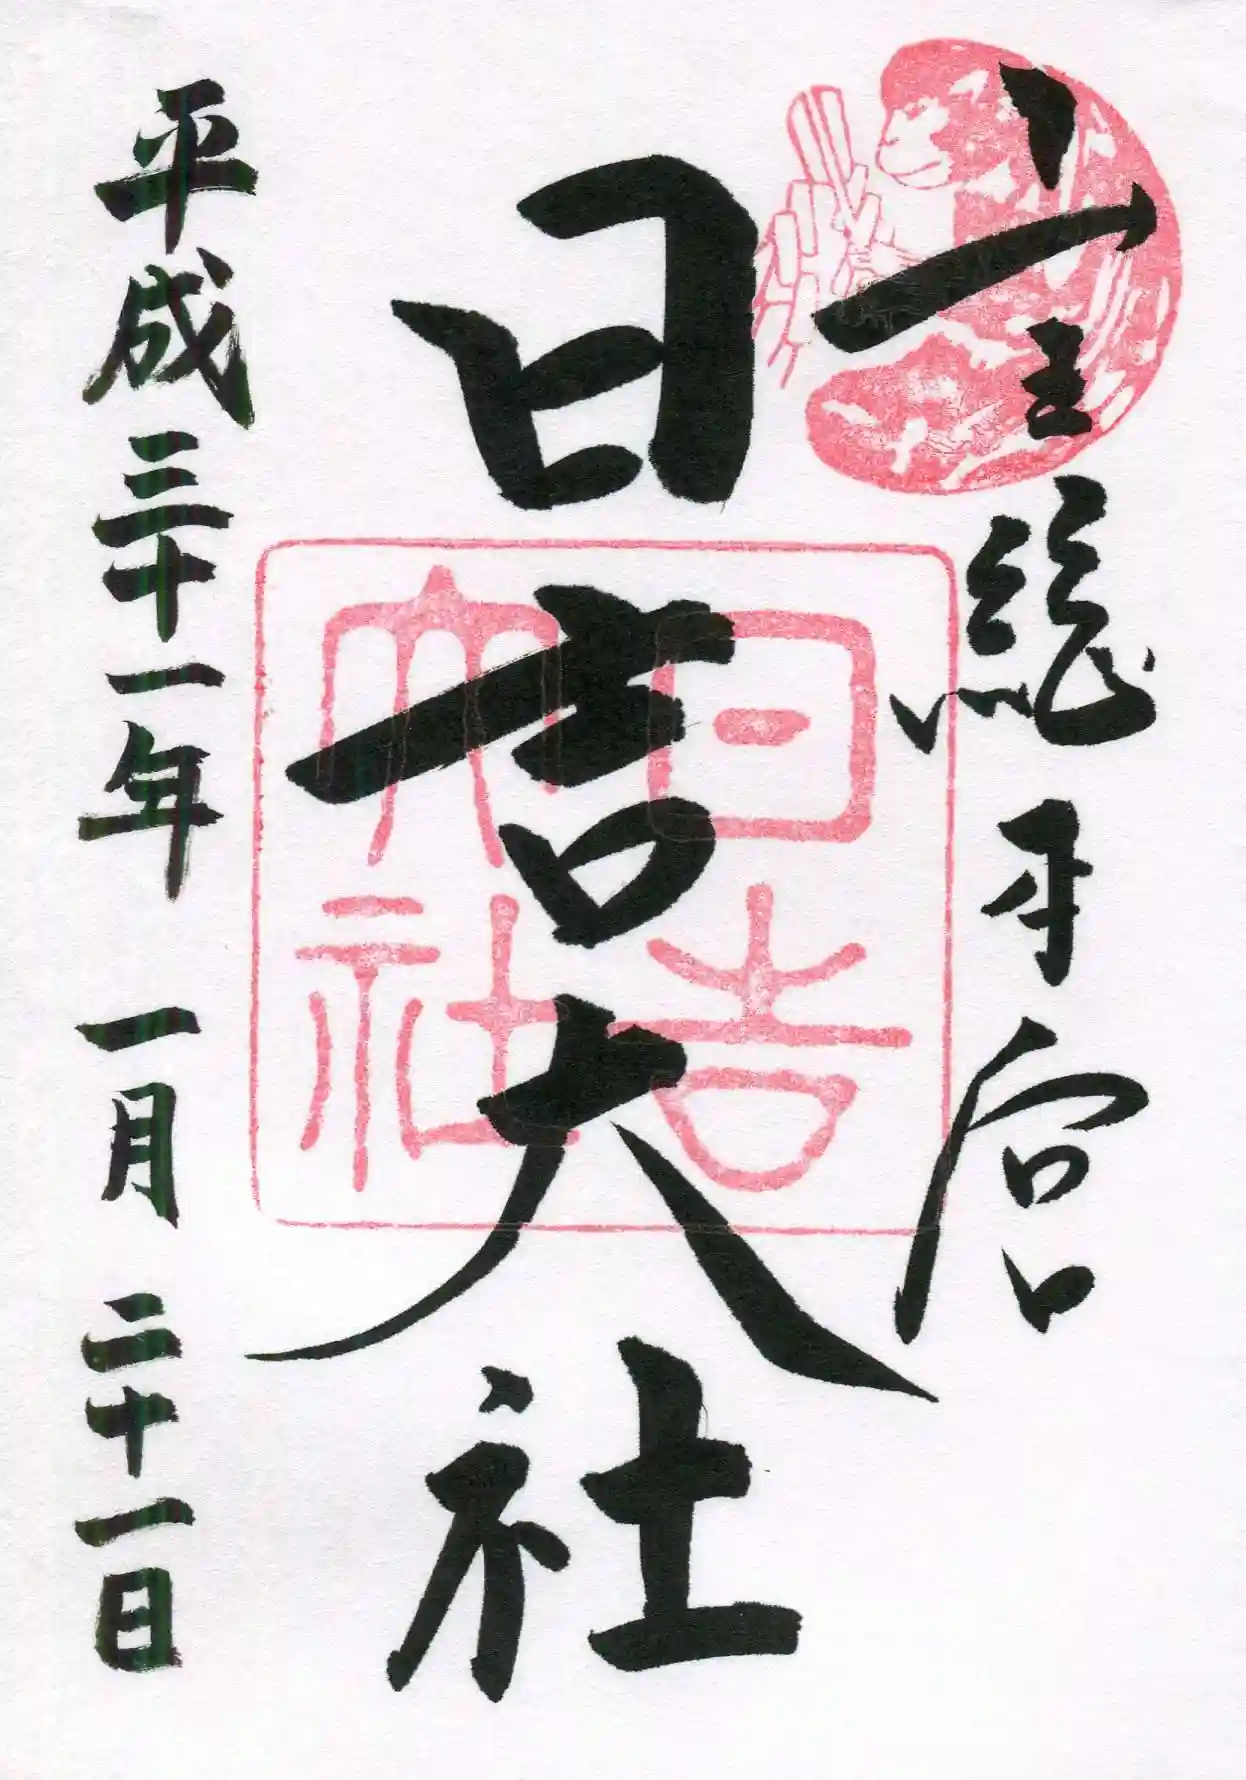 山王総本宮
日吉大社
日吉
大社
平成三十一年 一月 二十一日